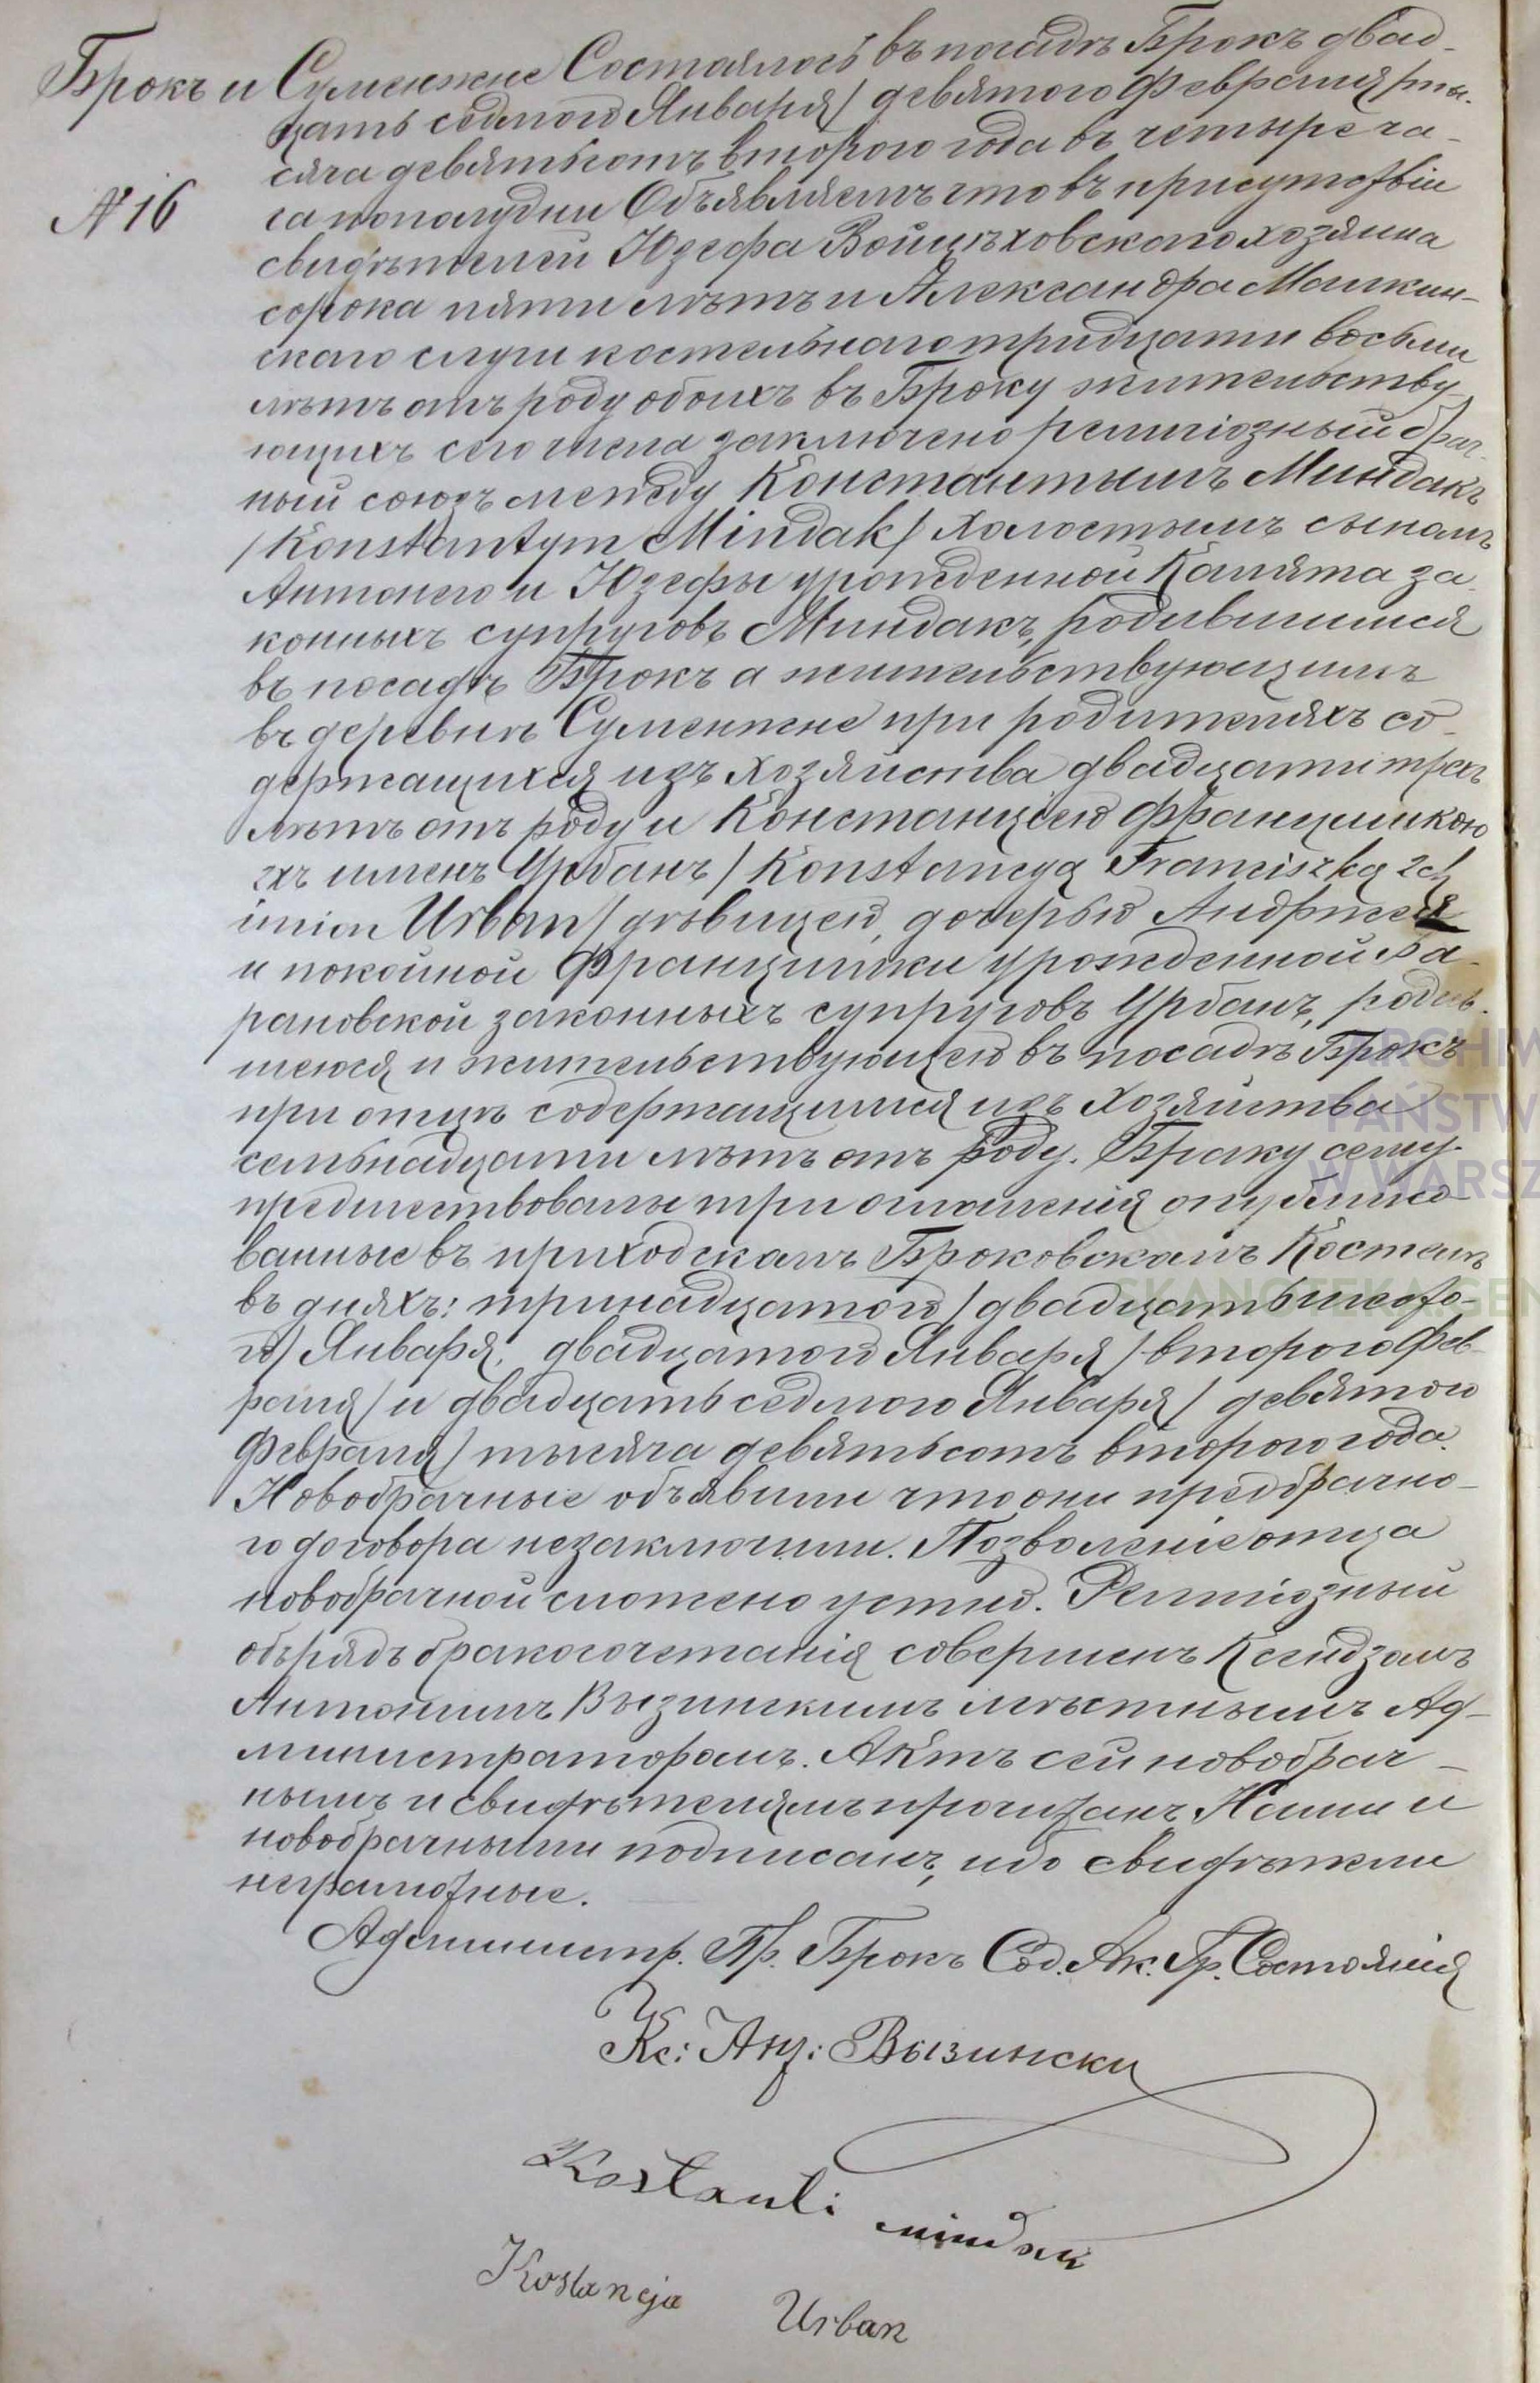 Брокъ и Суменжне Состоялось въ посадѣ Брокъ двад-
цать седмого Января / девятого Февраля / ты-
сяча девятьсотъ второго года въ четыре ча-
№ 16
са пополудни Объявляемъ что въ присутствіи
свидѣтелей Юзефа Войцѣховскаго хозяина
сорока пяти лѣтъ и Александра
скаго слуги костельнаго тридцати восьми
лѣтъ отъ роду обоихъ въ Броку жительству-
ющихъ сего числа заключено религіозный брач-
ный союзъ между Константымъ Миндакъ
/ Konstantym Mindak / холостымъ сыномъ
Антонего и Юзефы урожденной Калята за-
конныхъ супруговъ Миндакъ, родившимся
въ посадѣ Брокъ а жительствующимъ
въ деревнѣ Суменжне при родителяхъ со-
держащихся изъ хозяйства двадцати трехъ
лѣтъ отъ роду и Констанціею Францишкою
2хъ именъ Урбанъ / Konstancyą Franciszką 2ch
imion Urban / дѣвицею, дочерью Андржея
и покойной Францишки урожденной Ба-
рановской законныхъ супруговъ Урбанъ, родив-
шеюся и жительствующею въ посадѣ Брокъ
при отцѣ содержащимся изъ хозяйства
семьнадцати лѣтъ отъ роду. Браку сему
предшествовали три оглашенія опублико-
ванные въ приходскомъ Броковскомъ Костелѣ
въ дняхъ: тринадцатого / двадцать шесто-
го / Января, двадцатого Января / второго Фев-
раля / и двадцать седмого Января / девятого
Февраля / тысяча девятьсотъ второго года.
Новобрачные объявили что они предбрачно-
го договора незаключили. Позволеніе отца
новобрачной сложено устно. Религіозный
обърядъ бракосочетанія совершенъ Ксендзомъ
Антонимъ Вызинскимъ мѣстнымъ Ад-
министраторомъ. Актъ сей новобрач-
нымъ и свидѣтелямъ прочитанъ, Нами и
новобрачными подписанъ, ибо свидѣтели
неграмотные.
Администр. Пр. Брокъ Сод. Ак. Гр. Состоянія
Кс: Ант: Вызински
Kostanti mindak
Kostancja Urban
ARCHIW
PAŃSTW
W WARSZ
SKANOTEKA GEN